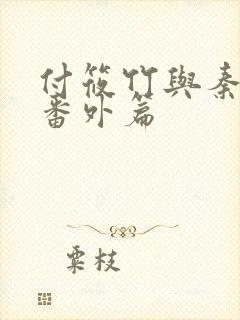 付筱竹與秦
番外篇
粟枝